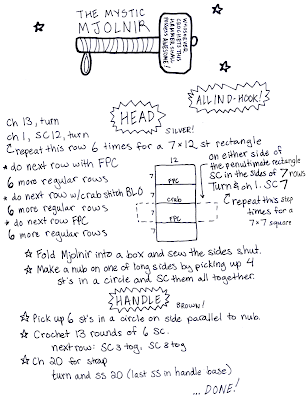 THE MYSTIC
MJOLNIR
WHOSOEVER
CROCHETS THIS
HAMMER, SHALL
POSSESS AWESOME!
ALL IN D-HOOK!
HEAD
SILVER!
ch 13, turn
ch 1, SC 12, turn
repeat this row 6 times for a 7x12 st rectangle
* do next row with FPC
6 more regular rows
* do next row w/crab stitch BLO
6 more regular rows
* do next row FPC
6 more regular rows
12
7
FPC
crab
7
FPC
on either side of
the penultimate rectangle
SC in the sides of 7 rows
Turn & ch 1. SC 7
repeat this step
times for a
7x7 square
Fold Mjolnir into a box and sew the sides shut.
Make a nub on one of long sides by picking up 4
st's in a circle and SC them all together.
HANDLE
BROWN!
Pick up 6 st's in a circle on side parallel to nub.
Crochet 13 rounds of 6 SC.
next row: SC 3 tog, SC 3 tog
Ch 20 for strap
turn and SS 20 (last SS in handle base)
... DONE!